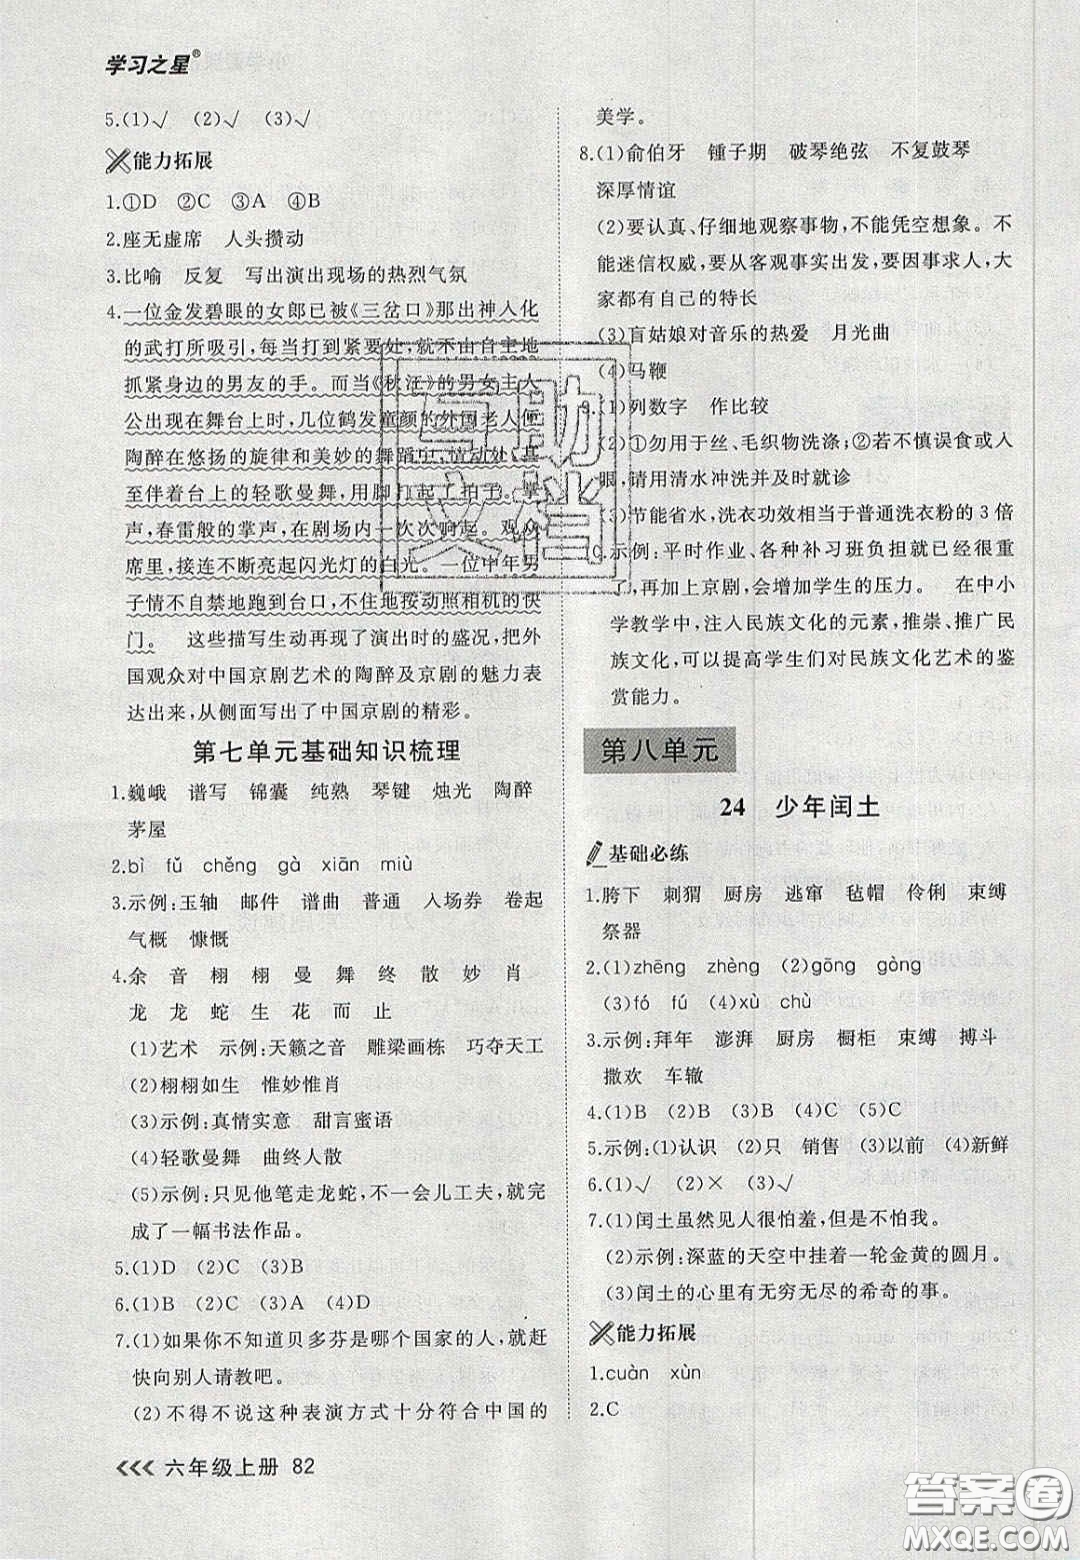 学习之星®
5.(1)√ (2)√ (3)√
能力拓展
1.①D ②C ③A ④B
2.座无虚席 人头攒动
3.比喻 反复 写出演出现场的热烈气氛
4.一位金发碧眼的女郎已被《三岔口》那出神入化
的武打所吸引,每当打到紧要处,就不由自主地
抓紧身边的男友的手。而当《秋江》的男女主人
公出现在舞台上时,几位鹤发童颜的外国老人便
陶醉在悠扬的旋律和美妙的舞蹈中,情动处,甚
至伴着台上的轻歌曼舞,用脚打起了拍子。掌
声,春雷般的掌声,在剧场内一次次响起。观众
席里,接连不断亮起闪光灯的白光。一位中年男
子情不自禁地跑到台口,不住地按动照相机的快
门。 这些描写生动再现了演出时的盛况,把外
国观众对中国京剧艺术的陶醉及京剧的魅力表
达出来,从侧面写出了中国京剧的精彩。
第七单元基础知识梳理
1.巍峨 谱写 锦囊 纯熟 琴键 烛光 陶醉
茅屋
2.bì fǔ chěng gà xiān miù
3.示例:玉轴 邮件 谱曲 普通 入场券 卷起
气概 慷慨
4.余 音 栩 栩 曼 舞 终 散 妙 肖
龙 龙 蛇 生 花 而 止
(1)艺术 示例:天籁之音 雕梁画栋 巧夺天工
(2)栩栩如生 惟妙惟肖
(3)示例:真情实意 甜言蜜语
(4)轻歌曼舞 曲终人散
(5)示例:只见他笔走龙蛇,不一会儿工夫,就完
成了一幅书法作品。
5.(1)D (2)C (3)B
6.(1)B (2)C (3)A (4)D
7.(1)如果你不知道贝多芬是哪个国家的人,就赶
快向别人请教吧。
(2)不得不说这种表演方式十分符合中国的
六年级上册 82
美学。
8.(1)俞伯牙 锺子期 破琴绝弦 不复鼓琴
深厚情谊
(2)要认真、仔细地观察事物,不能凭空想象。不
能迷信权威,要从客观事实出发,要因事求人,大
家都有自己的特长
(3)盲姑娘对音乐的热爱 月光曲
(4)马鞭
9.(1)列数字 作比较
(2)①勿用于丝、毛织物洗涤;②若不慎误食或入
眼,请用清水冲洗并及时就诊
(3)节能省水,洗衣功效相当于普通洗衣粉的3倍
0.示例:平时作业、各种补习班负担就已经很多
了,再加上京剧,会增加学生的压力。 在中小
学教学中,注入民族文化的元素,推崇、推广民
族文化,可以提高学生们对民族文化艺术的鉴
赏能力。
第八单元
24 少年闰土
基础必练
1.胯下 刺猬 厨房 逃窜 毡帽 伶俐 束缚
祭器
2.(1)zhēng zhèng (2)gōng gòng
(3)fó fú (4)xù chù
3.示例:拜年 澎湃 厨房 橱柜 束缚 搏斗
撒欢 车辙
4.(1)B (2)B (3)C (4)A (5)C
5.示例:(1)认识 (2)只 销售 (3)以前 (4)新鲜
6.(1)√ (2)× (3)√
7.(1)闰土虽然见人很怕羞,但是不怕我。
(2)示例:深蓝的天空中挂着一轮金黄的圆月。
(3)闰土的心里有无穷无尽的希奇的事。
能力拓展
1.cuàn xùn
2.C
互助
文档
答案圈
MXQE.COM